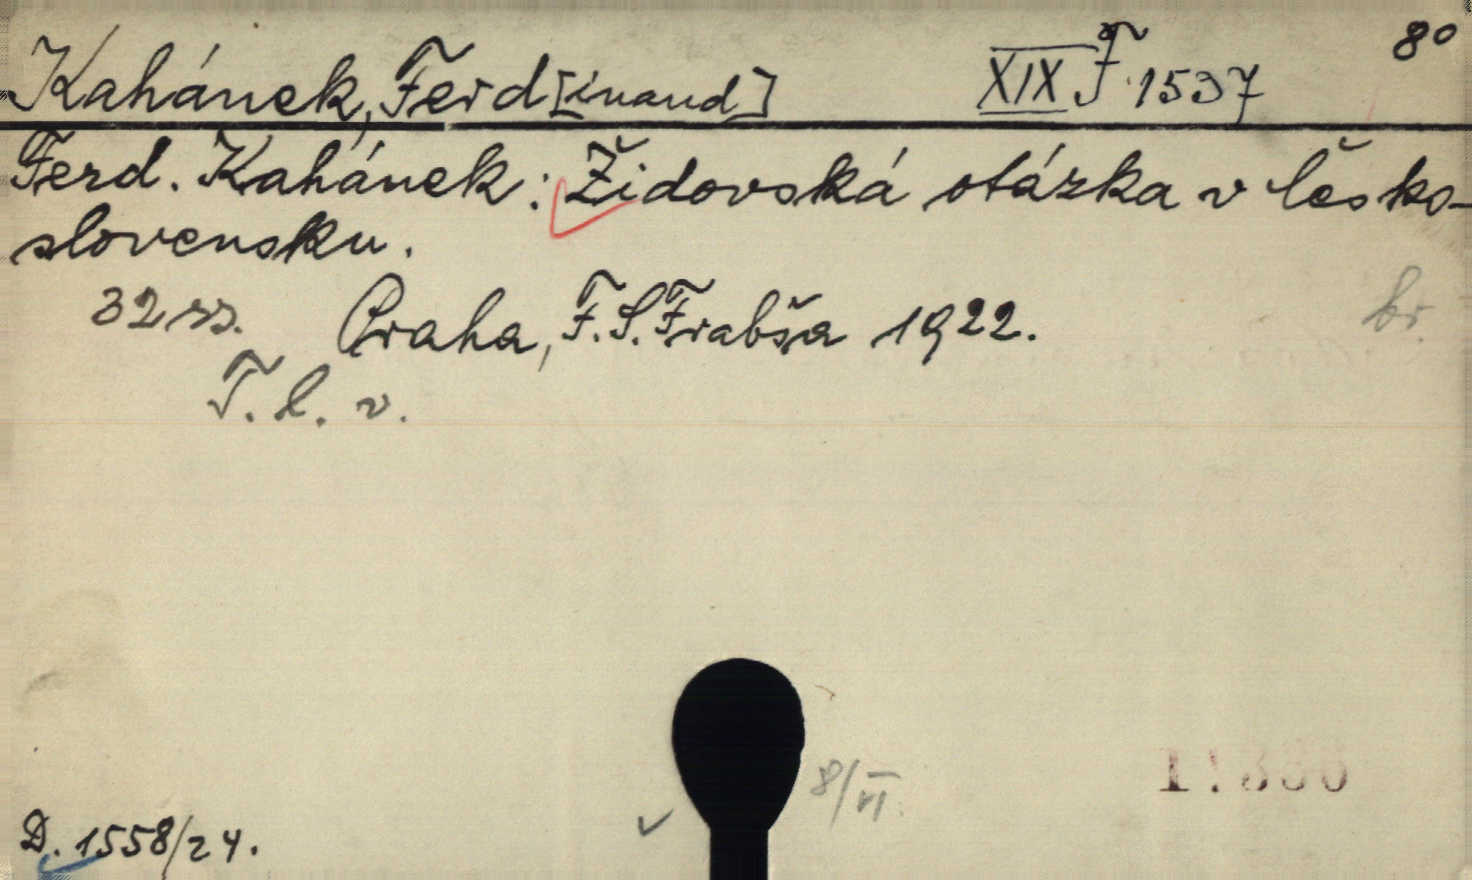 Kahánek, Ferd[inand] XIX F 1537 8°
Ferd. Kahánek: Židovská otázka v Česko-
slovensku.
32 ss. Praha, F.S. Frabša 1922. br.
T. l. v.
8/VI.
D. 1558/24.